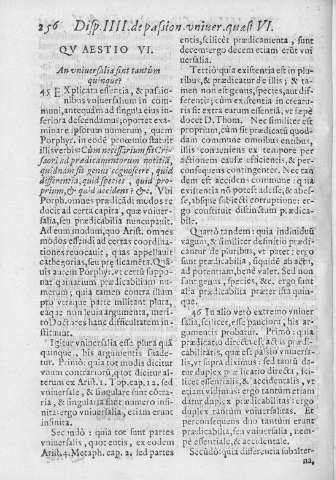 256 Disp. IIII. de pasion. vniuer. quæst VI.
QVAESTIO VI.
An vniuersalia sint tantùm
quinque?
45 EXplicata essentia, & passio-
nibus vniuersalium in com-
muni, antequam ad singula eius in-
feriora descendamus, oportet exami-
nare ipsorum numerum, quem
Porphyr. in eodé proœmio statuit
illis verbis: Cùm necessarium sit Cri-
saori ad prædicamentorum notitiā,
quidnam sit genus cognoscere, quid
differentia, quid species, quid pro-
prium, & quid accidens, &c. Vbi
Porph. omnes prædicādi modos re
ducit ad certa capita, quæ vniuer-
salia, seu prædicabilia nuncupauit.
Ad eum modum, quo Arist. omnes
modos essendi ad certas coordina-
tiones reuocauit, quas appellauit
cathegorias, seu prædicamēta. Quā-
uis autem Porphyr. vt certū suppo-
nat quinarium prædicabilium nu-
merum; quia tamen contra illam
pro vtraque parte militant plura,
eaque non leuia argumenta, meri-
to Doctores hanc difficultatem in-
stituunt.
Igitur vniuersalia esse plura quā
quinque, his argumentis suade-
tur. Primò: quia tot modis dicitur
vnum contrariorū, quot dicitur al-
terum ex Arist. 1. Top. cap. 12. sed
vniuersale, & singulare sunt cōtra-
ria, & singularia sunt numero infi-
nita: ergo vniuersalia, etiam erunt
infinita.
Secundò: quia tot sunt partes
vniuersalis, quot entis, ex eodem
Arist. 4. Metaph. cap. 2. sed partes
entis, scilicet prædicamenta, sunt
decem: ergo decem etiam erūt vni
uersalia.
Tertiò quia existentia est in plu-
ribus, & prædicatur de illis; & ta-
men non est genus, differentia, aut
species; cùm existentia præscindat,
vt sit extra earum essentiā: vt sępè
docet D. Thom. Nec similiter est
proprium, cùm sit prædicatū quod-
dam commune omnibus entibus,
illis conueniens ex tempore per
actionem causæ efficientis, & per-
consequens contingenter. Nec tan
dem est accidens commune; quia
existentia nō potest adesse, & abes-
se, absque subiecti corruptione: er-
go constituit distinctum prædica-
bile.
Quartò tandem: quia indiuiduū
vagum, & similiter definitio prædi-
cantur de pluribus, vt patet; ergo
sunt prædicabilia, siquidē ab actu,
ad potentiam, benè valet. Sed non
sunt genus, species, &c. ergo sunt
alia prædicabilia præter ista quin-
que.
46 In alio verò extremo vniuer
salia, scilicet, esse pauciora, his ar-
gumentis probatur. Primò: quia
prædicatio directa est actus prædi-
cabilitatis, quæ est passio vniuersa-
lis, vt supra diximus: sed tantùm da
tur duplex prædicatio directa, sci-
licet essentialis, & accidentalis, vt
etiam vidimus: ergo tantùm etiam
datur duplex prædicabilitas: ergo
duplex tantùm vniuersalitas. Et
perconsequens duo tantùm erunt
prædicabilia, seu vniuersalia, nem-
pè essentiale, & accidentale.
Secūdò: quia differentia subalter-
na,